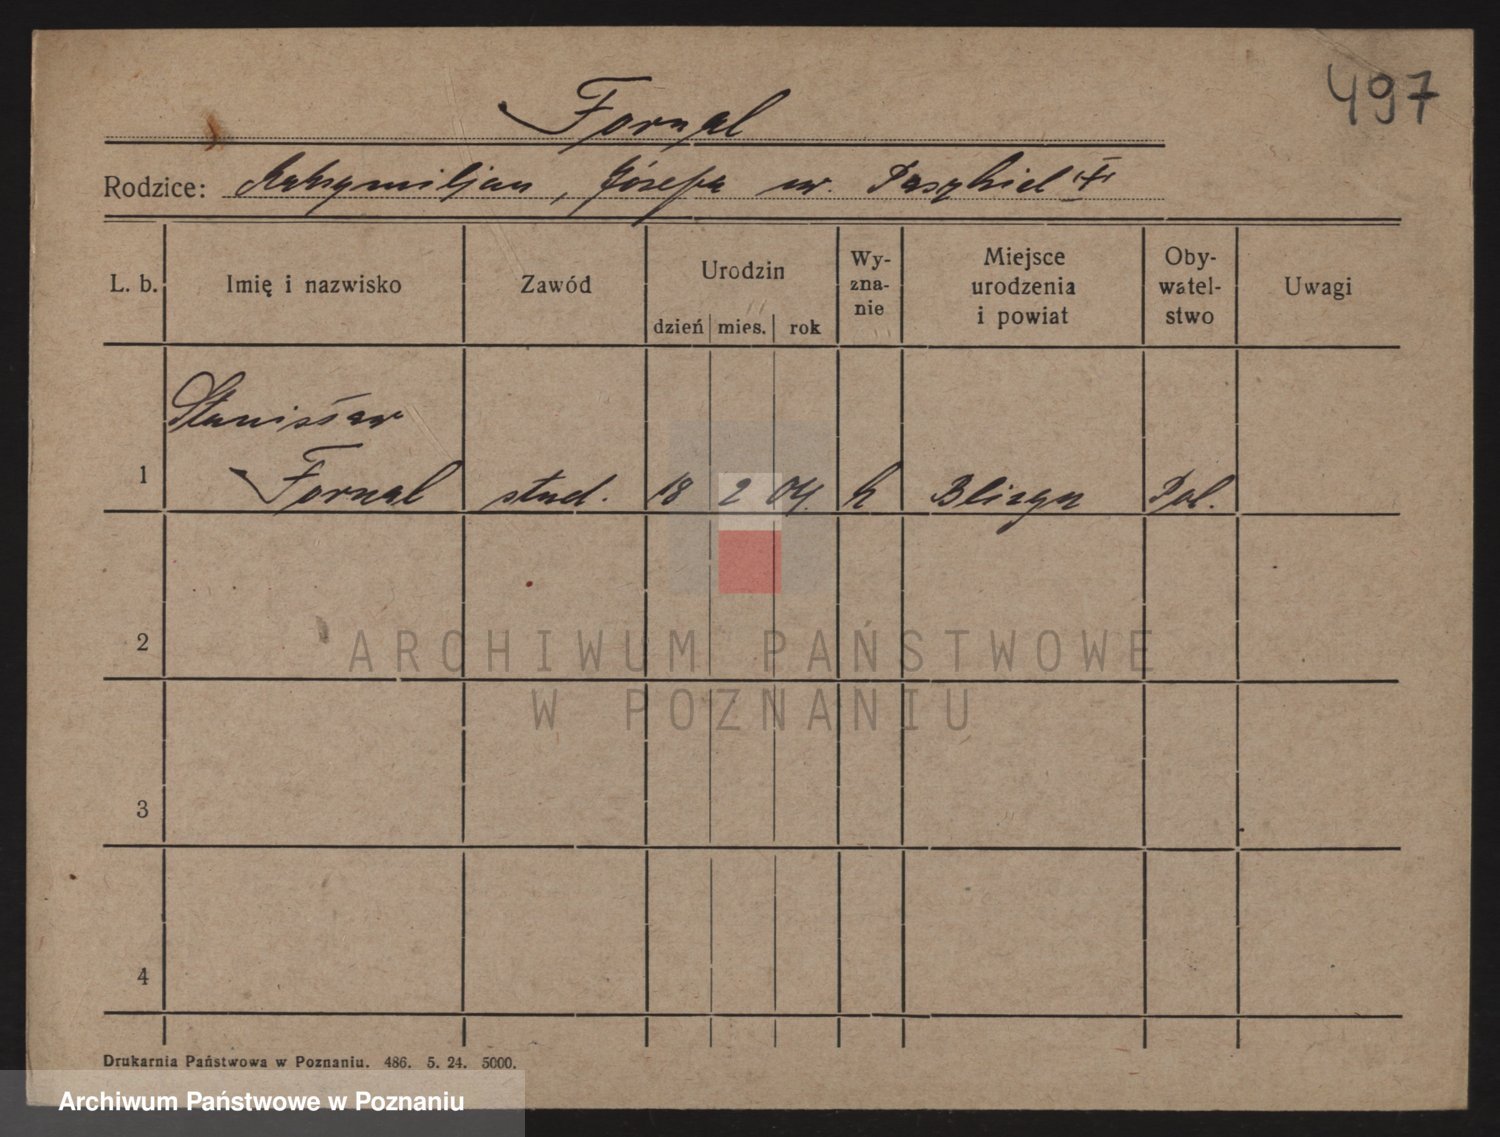 497
Fornal
Rodzice: Maksymiljan, Józefa ur. Paszkiel
L. b. Imię i nazwisko Zawód Urodzin dzień mies. rok Wy-zna-nie Miejsce urodzenia i powiat Oby-watel-stwo Uwagi
Stanisław
1 Fornal stud. 18 2 04. k Blizyn Pol.
2
ARCHIWUM PAŃSTWOWE
W POZNANIU
3
4
Drukarnia Państwowa w Poznaniu. 486. 5. 24. 5000.
Archiwum Państwowe w Poznaniu